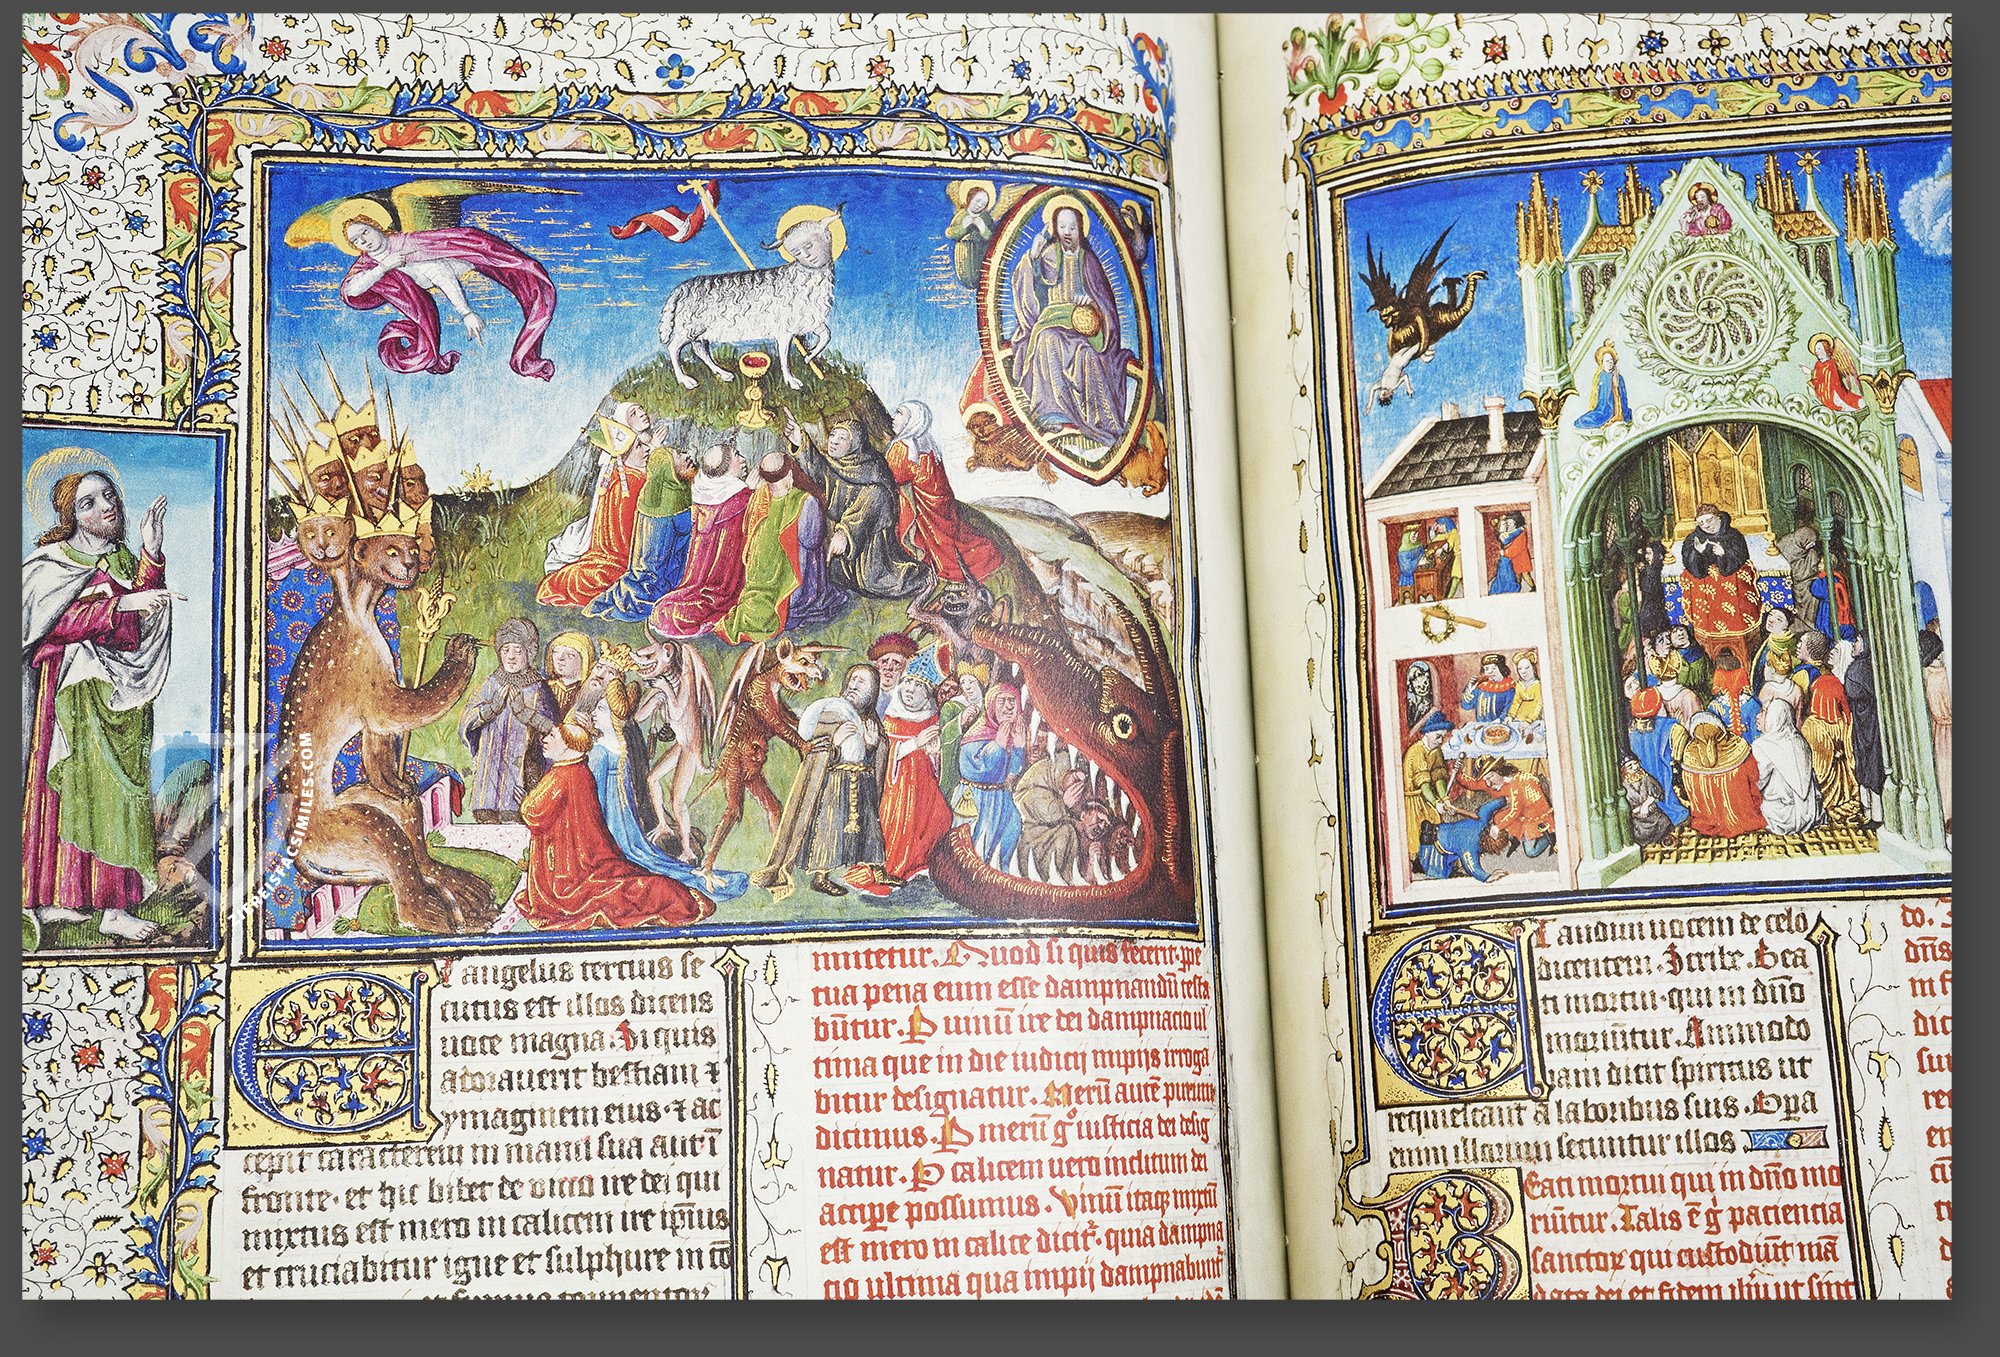 Et angelus tertius se
cutus est illos dicens
uoce magna. Si quis
adorauerit bestiam ⁊
ymaginem eius · ⁊ ac
ceperit caracterem in manu sua aut ī
fronte · et hic bibet de uino ire dei qui
mixtus est mero in calicem ire ipsius
et cruciabitur igne et sulphure in cō
mittetur. Quod si quis fecerit · ppe
tua pena eum esse dampnandū testa
būtur. P uinum ire dei dampnacio ul
tima que in die iudicij impijs irroga
bitur designatur. Merū autē purum
dicimus. P merum g° iusticia dei desig
natur. P calicem uero inclitum dei
accipe possumus. Vinū itaq mixtū
est mero in calice dicit · quia dampna
cio ultima qua impij dampnabunt
Et audiui uocem de celo
dicentem. Scribe. Bea
ti mortui · qui in dño
moriūtur. Amodo
iam dicit spiritus ut
requiescant a laboribus suis. Opa
enim illorum secuntur illos
Beati mortui qui in dño mo
riūtur. Talis ē g paciencia
sanctor qui custodiūt mā
data dei et fidem ihū ut sint
ZIEREIS FACSIMILES.COM